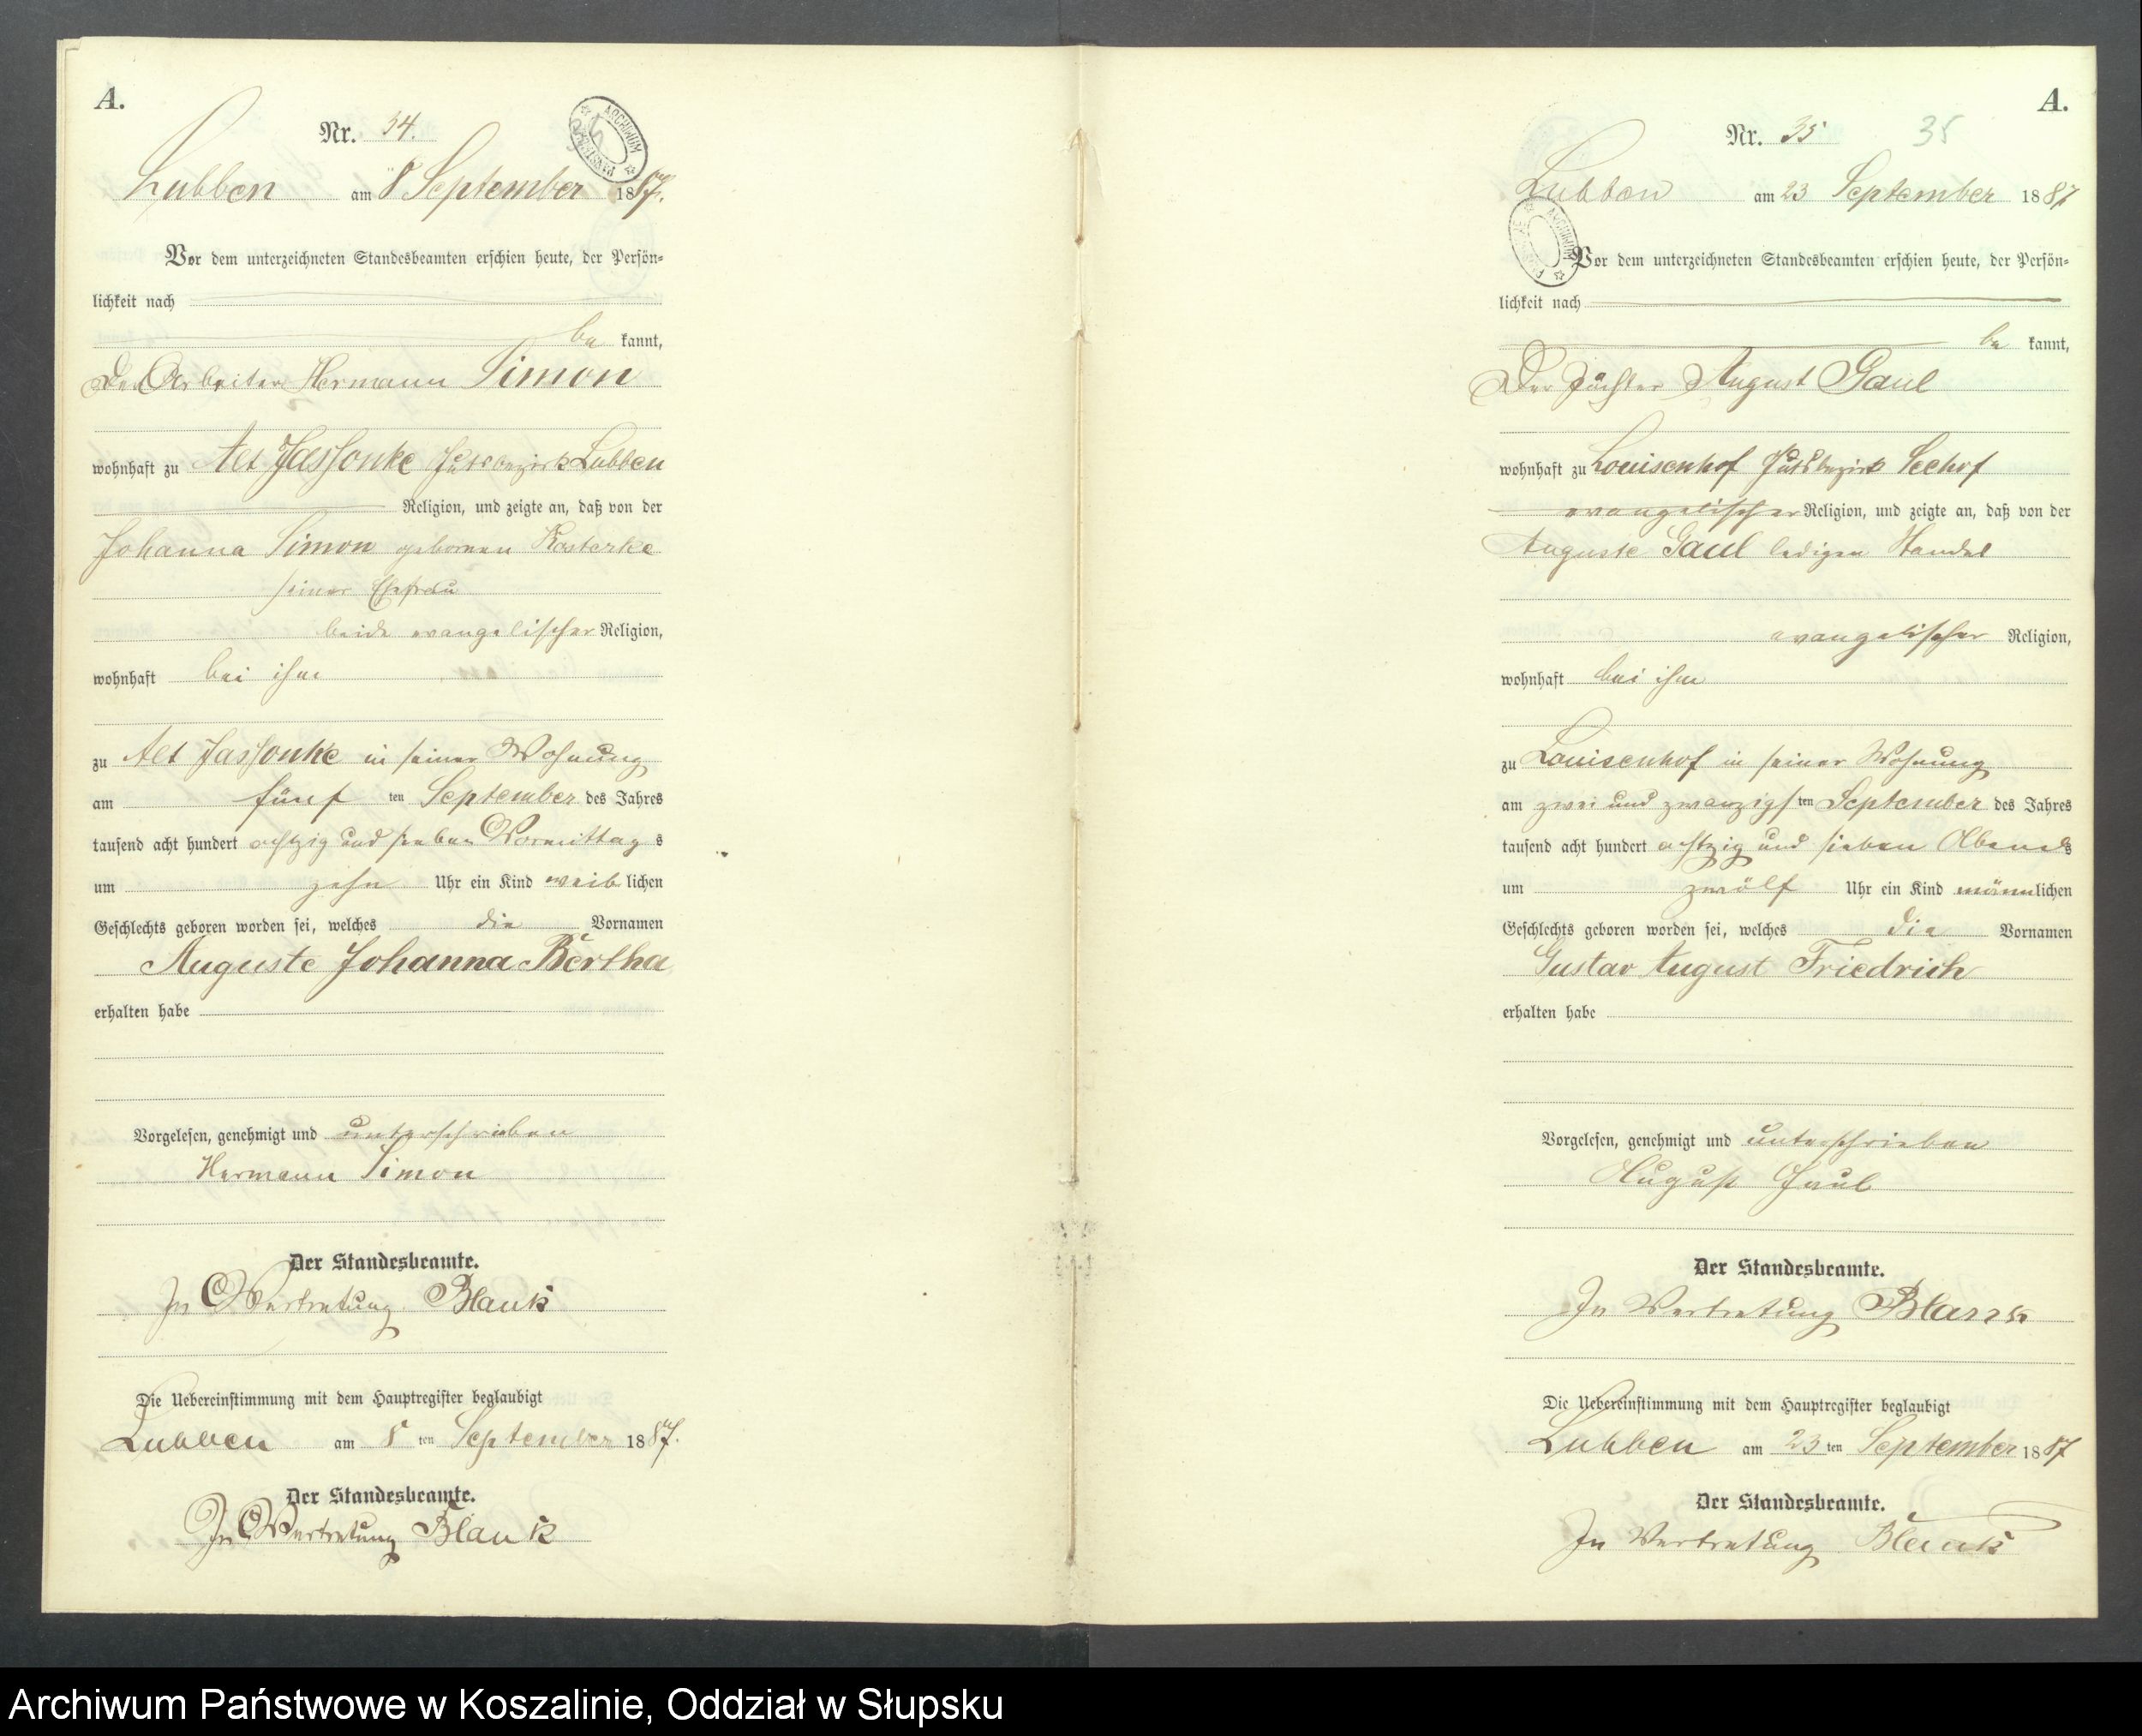 A.
Nr. 34.
Lubben am 8 September 1887.
Vor dem unterzeichneten Standesbeamten erschien heute, der Persön-
lichkeit nach
be kannt,
Der Arbeiter Hermann Simon
wohnhaft zu Alt Jassonke Gutsbezirk Lubben
Religion, und zeigte an, daß von der
Johanna Simon gebornen
seiner Ehefrau
beide evangelischer Religion,
wohnhaft bei ihm
zu Alt Jassonke in seiner Wohnung
am fünf ten September des Jahres
tausend acht hundert achtzig und sieben Vormittag s
um zehn Uhr ein Kind weib lichen
Geschlechts geboren worden sei, welches die Vornamen
Auguste Johanna Bertha
erhalten habe
Vorgelesen, genehmigt und unterschrieben
Hermann Simon
Der Standesbeamte.
In Vertretung Blank
Die Uebereinstimmung mit dem Hauptregister beglaubigt
Lubben am ten September 1887.
Der Standesbeamte.
In Vertretung Blank
A.
Nr. 35 35
Lubben am 23 September 1887
Vor dem unterzeichneten Standesbeamten erschien heute, der Persön-
lichkeit nach
be kannt,
Der Pächter August Gaul
wohnhaft zu Louisenhof Gutsbezirk Seehof
evangelischer Religion, und zeigte an, daß von der
Auguste Gaul ledigen Standes
evangelischer Religion,
wohnhaft bei ihm
zu Louisenhof in seiner Wohnung
am zwei und zwanzigs ten September des Jahres
tausend acht hundert achtzig und sieben Abends
um zwölf Uhr ein Kind männlichen
Geschlechts geboren worden sei, welches die Vornamen
Gustav August Friedrich
erhalten habe
Vorgelesen, genehmigt und unterschrieben
August Gaul
Der Standesbeamte.
In Vertretung Blank
Die Uebereinstimmung mit dem Hauptregister beglaubigt
Lubben am 23 ten September 1887
Der Standesbeamte.
In Vertretung Blank
Archiwum Państwowe w Koszalinie, Oddział w Słupsku